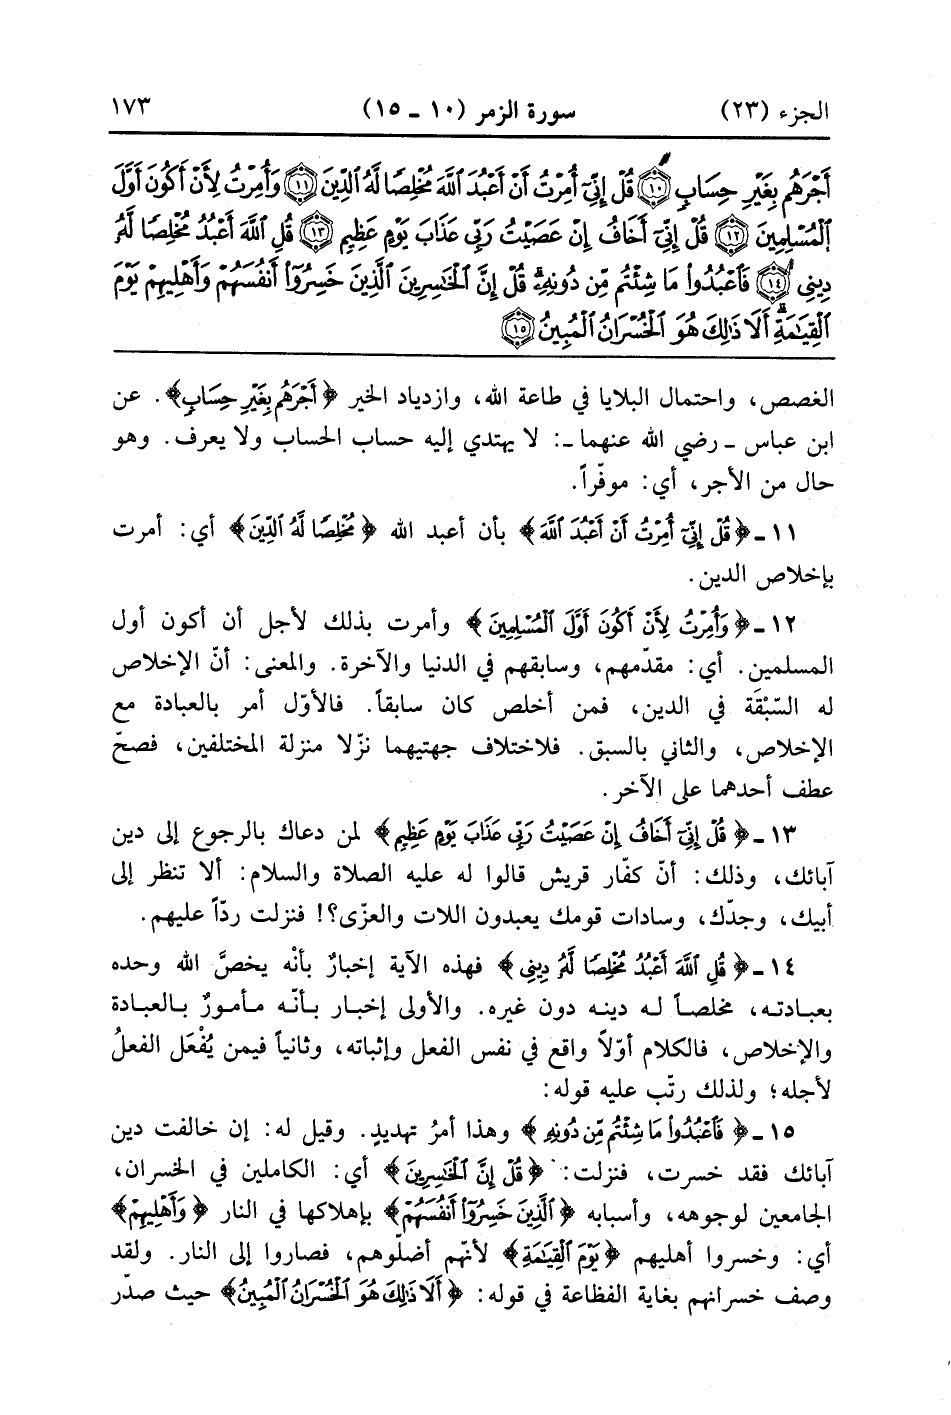 الجزء (٢٣) سورة الزمر (١٠ ـ ١٥) ١٧٣
أَجْرَهُم بِغَيْرِ حِسَابٍ ﴿١٠﴾ قُلْ إِنِّيٓ أُمِرْتُ أَنْ أَعْبُدَ ٱللَّهَ مُخْلِصًا لَّهُ ٱلدِّينَ ﴿١١﴾ وَأُمِرْتُ لِأَنْ أَكُونَ أَوَّلَ
ٱلْمُسْلِمِينَ ﴿١٢﴾ قُلْ إِنِّيٓ أَخَافُ إِنْ عَصَيْتُ رَبِّي عَذَابَ يَوْمٍ عَظِيمٍ ﴿١٣﴾ قُلِ ٱللَّهَ أَعْبُدُ مُخْلِصًا لَّهُۥ
دِينِي ﴿١٤﴾ فَٱعْبُدُوا۟ مَا شِئْتُم مِّن دُونِهِۦۗ قُلْ إِنَّ ٱلْخَٰسِرِينَ ٱلَّذِينَ خَسِرُوٓا۟ أَنفُسَهُمْ وَأَهْلِيهِمْ يَوْمَ
ٱلْقِيَٰمَةِۗ أَلَا ذَٰلِكَ هُوَ ٱلْخُسْرَانُ ٱلْمُبِينُ ﴿١٥﴾
الغصص، واحتمال البلايا في طاعة الله، وازدياد الخير ﴿أَجْرَهُم بِغَيْرِ حِسَابٍ﴾. عن
ابن عباس ـ رضي الله عنهما ـ: لا يهتدي إليه حساب الحساب ولا يعرف. وهو
حال من الأجر، أي: موفّراً.
١١ ـ ﴿قُلْ إِنِّيٓ أُمِرْتُ أَنْ أَعْبُدَ ٱللَّهَ﴾ بأن أعبد الله ﴿مُخْلِصًا لَّهُ ٱلدِّينَ﴾ أي: أمرت
بإخلاص الدين.
١٢ ـ ﴿وَأُمِرْتُ لِأَنْ أَكُونَ أَوَّلَ ٱلْمُسْلِمِينَ﴾ وأمرت بذلك لأجل أن أكون أول
المسلمين. أي: مقدّمهم، وسابقهم في الدنيا والآخرة. والمعنى: أنّ الإخلاص
له السّبْقَة في الدين، فمن أخلص كان سابقاً. فالأوّل أمر بالعبادة مع
الإخلاص، والثاني بالسبق. فلاختلاف جهتيهما نزّلا منزلة المختلفين، فصحّ
عطف أحدهما على الآخر.
١٣ ـ ﴿قُلْ إِنِّيٓ أَخَافُ إِنْ عَصَيْتُ رَبِّي عَذَابَ يَوْمٍ عَظِيمٍ﴾ لمن دعاك بالرجوع إلى دين
آبائك، وذلك: أنّ كفّار قريش قالوا له عليه الصلاة والسلام: ألا تنظر إلى
أبيك، وجدّك، وسادات قومك يعبدون اللات والعزّى؟! فنزلت ردّاً عليهم.
١٤ ـ ﴿قُلِ ٱللَّهَ أَعْبُدُ مُخْلِصًا لَّهُۥ دِينِي﴾ فهذه الآية إخبارٌ بأنْه يخصَّ الله وحده
بعبادته، مخلصاً له دينه دون غيره. والأولى إخبار بأنّه مأمورٌ بالعبادة
والإخلاص، فالكلام أوّلاً واقع في نفس الفعل وإثباته، وثانياً فيمن يُفْعَل الفعلُ
لأجله؛ ولذلك رتّب عليه قوله:
١٥ ـ ﴿فَٱعْبُدُوا۟ مَا شِئْتُم مِّن دُونِهِۦ﴾ وهذا أمرُ تهديدٍ. وقيل له: إن خالفت دين
آبائك فقد خسرت، فنزلت: ﴿قُلْ إِنَّ ٱلْخَٰسِرِينَ﴾ أي: الكاملين في الخسران،
الجامعين لوجوهه، وأسبابه ﴿ٱلَّذِينَ خَسِرُوٓا۟ أَنفُسَهُمْ﴾ بإهلاكها في النار ﴿وَأَهْلِيهِمْ﴾
أي: وخسروا أهليهم ﴿يَوْمَ ٱلْقِيَٰمَةِ﴾ لأنّهم أضلّوهم، فصاروا إلى النار. ولقد
وصف خسرانهم بغاية الفظاعة في قوله: ﴿أَلَا ذَٰلِكَ هُوَ ٱلْخُسْرَانُ ٱلْمُبِينُ﴾ حيث صدّر